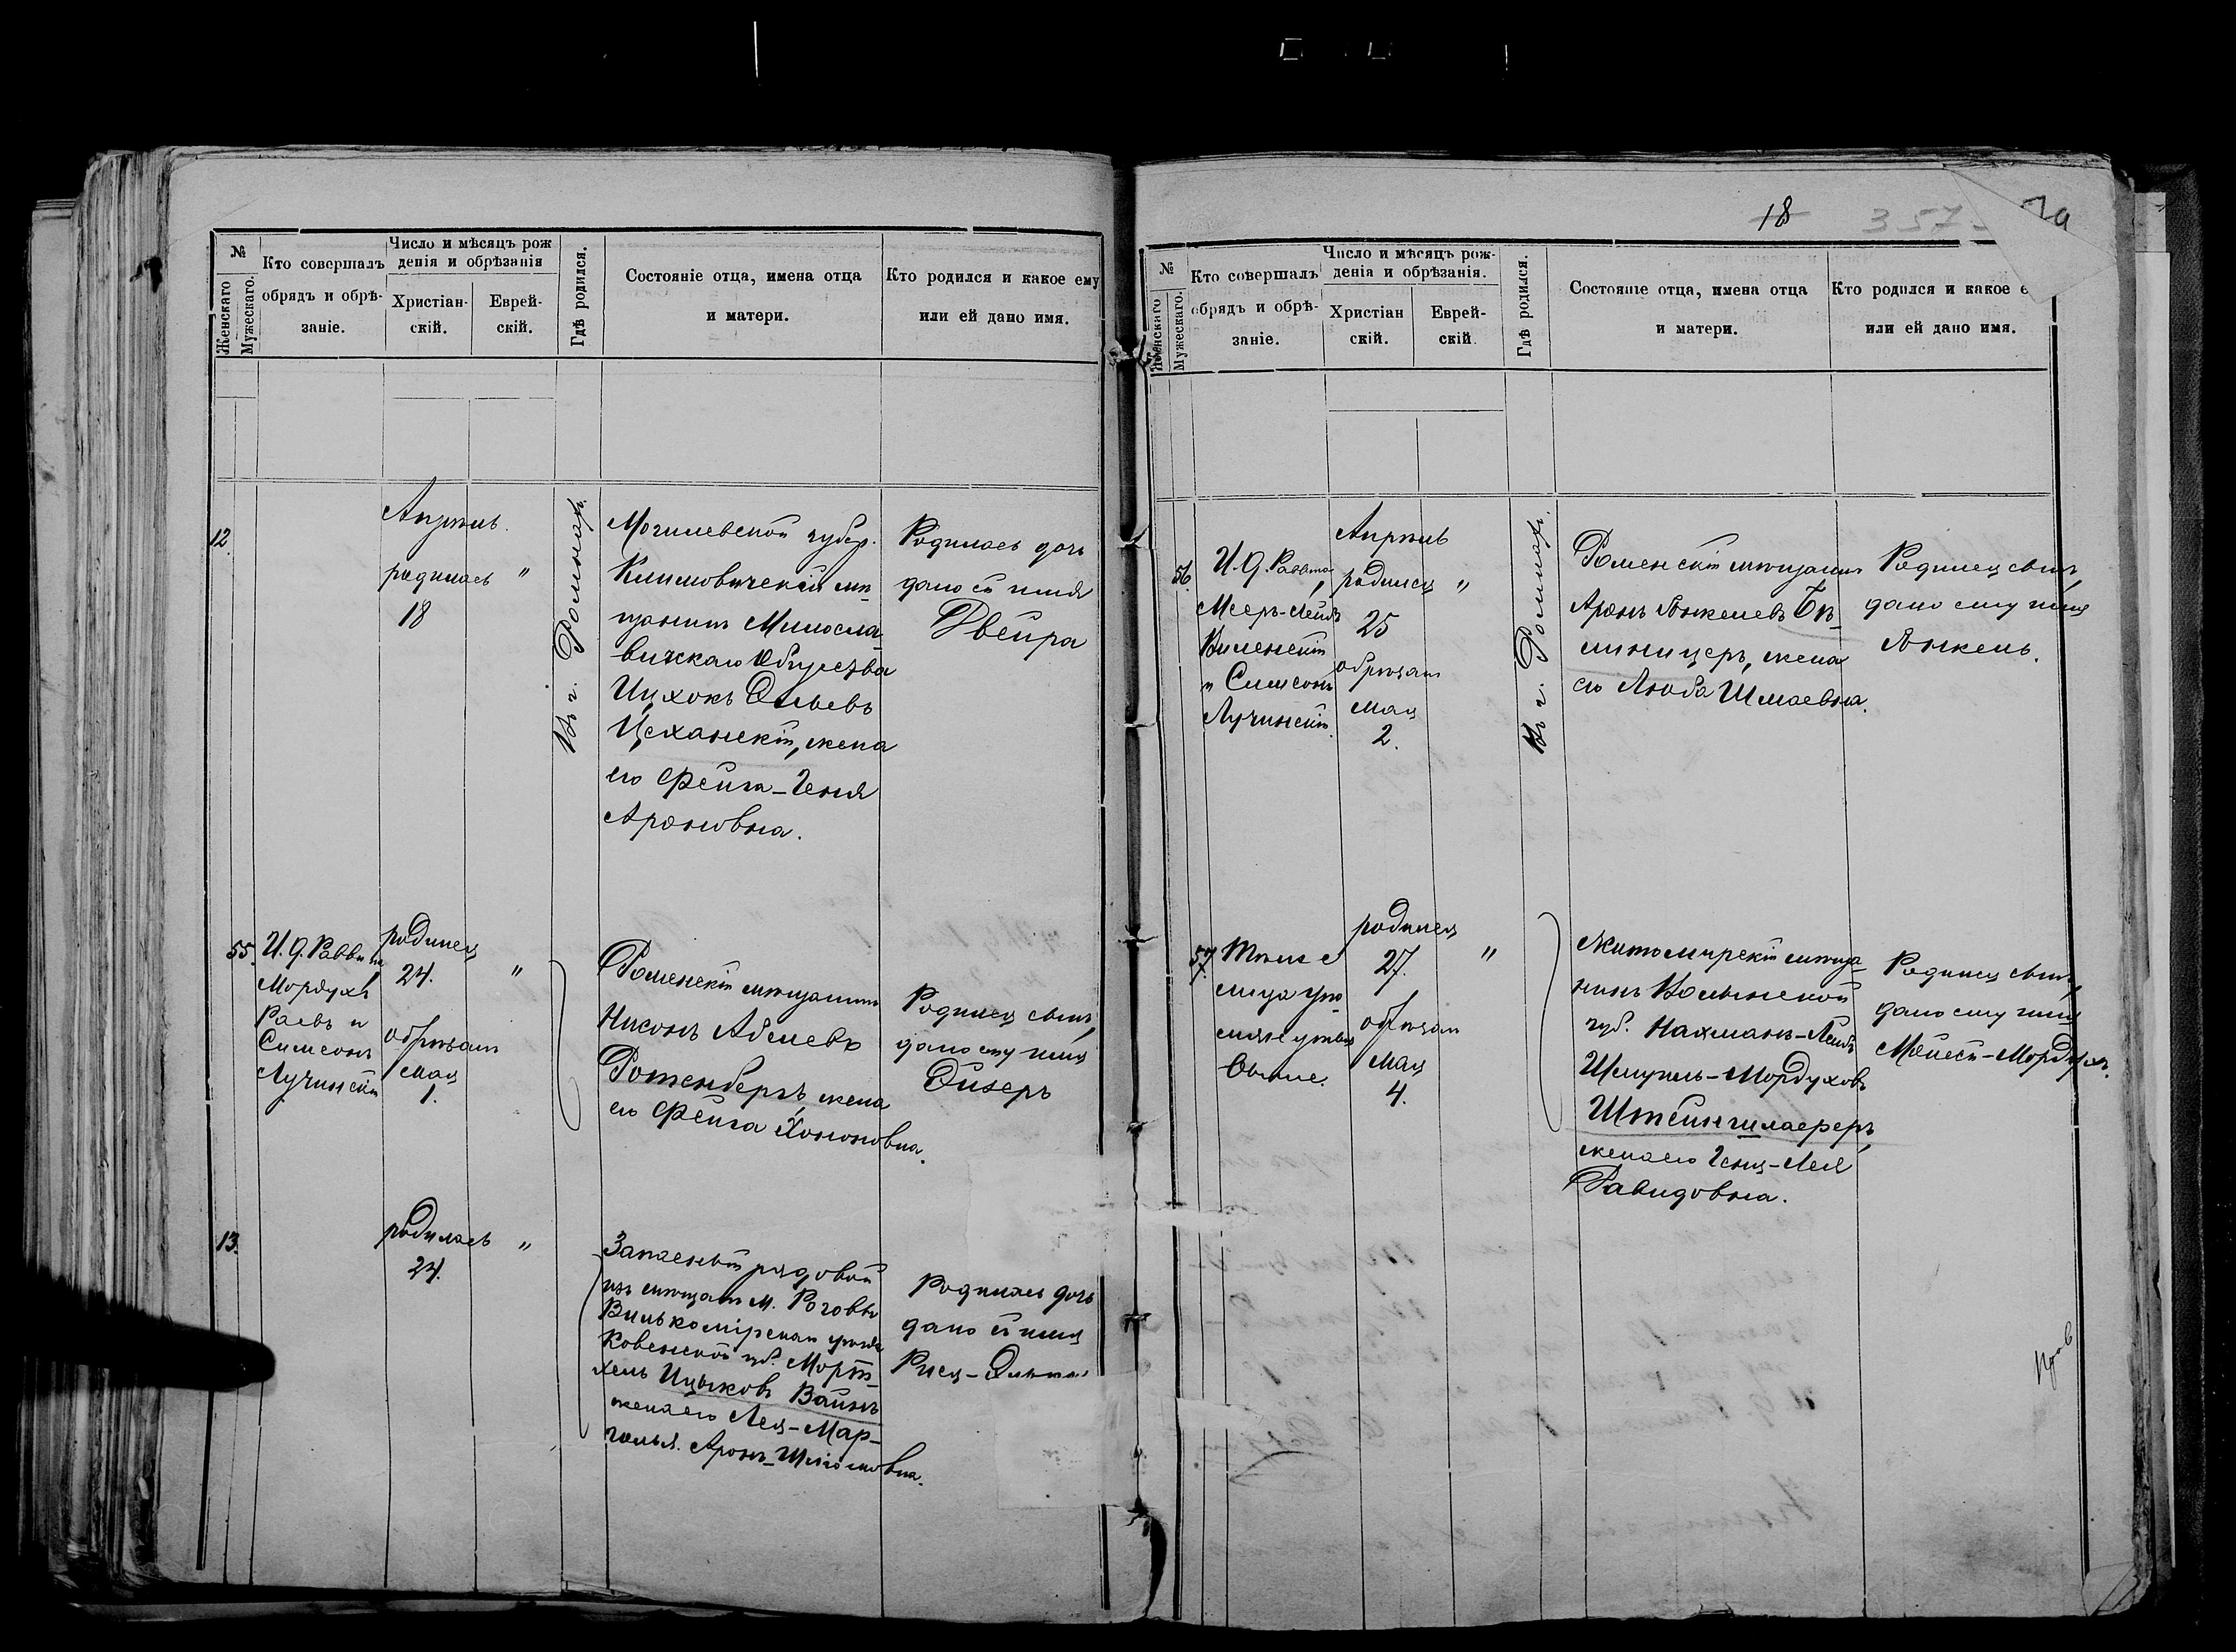 №
Женскаго
Мужескаго.
Кто совершалъ
обрядъ и обрѣ-
заніе.
Число и мѣсяцъ рож
денія и обрѣзанія
Христіан-
скій.
Еврей-
скій.
Гдѣ родился.
Состояніе отца, имена отца
и матери.
Кто родился и какое ему
или ей дано имя.
12.
Апрѣль.
родилась "
18
Въ г. Ромнахъ.
Могилевской губер.
Климовичскій мѣ-
щанинъ Милосла-
вичскаго Общества
Ицхокъ
Цеханскій, жена
его Фейга-Геня
Ароновна.
Родилась дочь
дано ей имя
Двейра
55.
И. д. Раввина
Мордухъ
Раевъ и
Симсонъ
Лучинскій
родился
24.
"
обрѣзанъ
мая
1.
Роменскій мѣщанинъ
Нисонъ Абелевъ
Ротенбергъ, жена
его Фейга Хононовна.
Родился сынъ,
дано ему имя
Ойзеръ
13.
родилась "
24.
Запасный рядовой
изъ мѣщанъ м. Роговъ
Вилькомірскаго уѣзда
Ковенской губ. Морт-
хель Ицыковъ Вайнъ
жена его Лея-Мар-
голья. Аронъ-Шліомовна.
Родилась дочь
дано ей имя
Рися-
18
357
№
Женскаго
Мужескаго.
Кто совершалъ
обрядъ и обрѣ-
заніе.
Число и мѣсяцъ рож-
денія и обрѣзанія.
Христіан
скій.
Еврей-
скій.
Гдѣ родился.
Состояніе отца, имена отца
и матери.
Кто родился и какое е
или ей дано имя.
56.
И. д. Раввина
Мееръ-Лейбъ
Виленскій
" Симсонъ
Лучинскій.
Апрѣль
родился "
25
обрѣзанъ
мая
2.
Въ г. Ромнахъ.
Роменскій мѣщанинъ
Аронъ Янкелевъ Бѣ-
линицеръ, жена
его Люба Шмаевна.
Родился сынъ,
дано ему имя
Янкель.
57.
Тѣже
лица упо
мянутыя
Выше.
родился
27.
"
обрѣзанъ
мая
4.
Житомирскій мѣща-
нинъ Волынской
губ. Нахманъ-Лейбъ
Шмуель-Мордуховъ
Штейншлаеферъ,
жена его Геня-Лея
Давидовна.
Родился сынъ,
дано ему имя
Мойсей-Мордухъ.